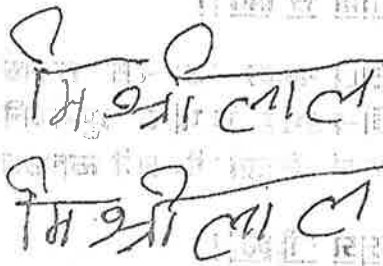 मिश्रीलाल
मिश्रीलाल